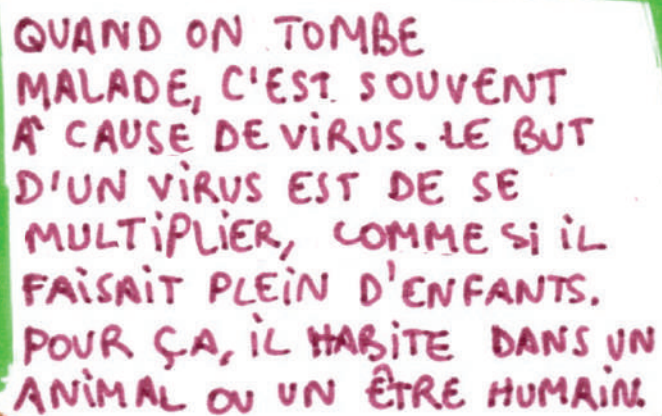 QUAND ON TOMBE
MALADE, C'EST SOUVENT
À CAUSE DE VIRUS. LE BUT
D'UN VIRUS EST DE SE
MULTIPLIER, COMME SI IL
FAISAIT PLEIN D'ENFANTS.
POUR ÇA, IL HABITE DANS UN
ANIMAL OU UN ÊTRE HUMAIN.